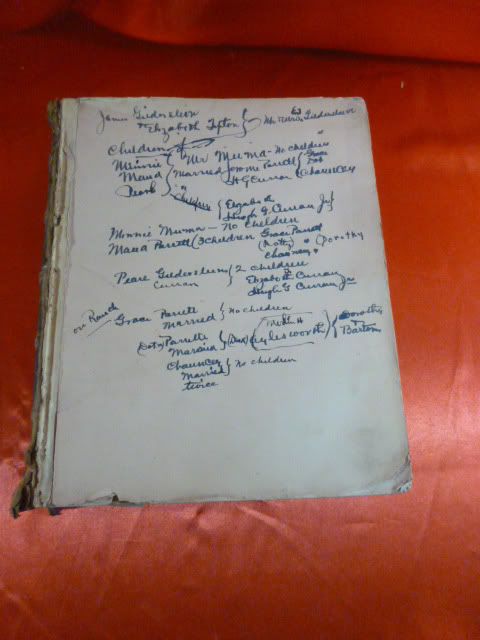 James Gilderslein
& Elizabeth Tipton } Mr & Mrs. Gildersleeve
Children of
Minnie } Mr Muma - No children
Maud } Married Jerome Parrett { Grace Dot
Pearl } H G Curran Chauncey
Children { Elizabeth
Hugh G. Curran Jr
Minnie Muma - No Children
Maud Parrett (3 children Grace Parrett
(Dotty) Dorothy
Chauncey "
Pearl Gilderslein { 2 children
Curran Elizabeth Curran
Hugh G Curran Jr
on Ranch Grace Parrett } No children
Married
(Doty) Parrette } Aylesworth } Dorothy
Married Barton
Chauncey } No children
Married
twice